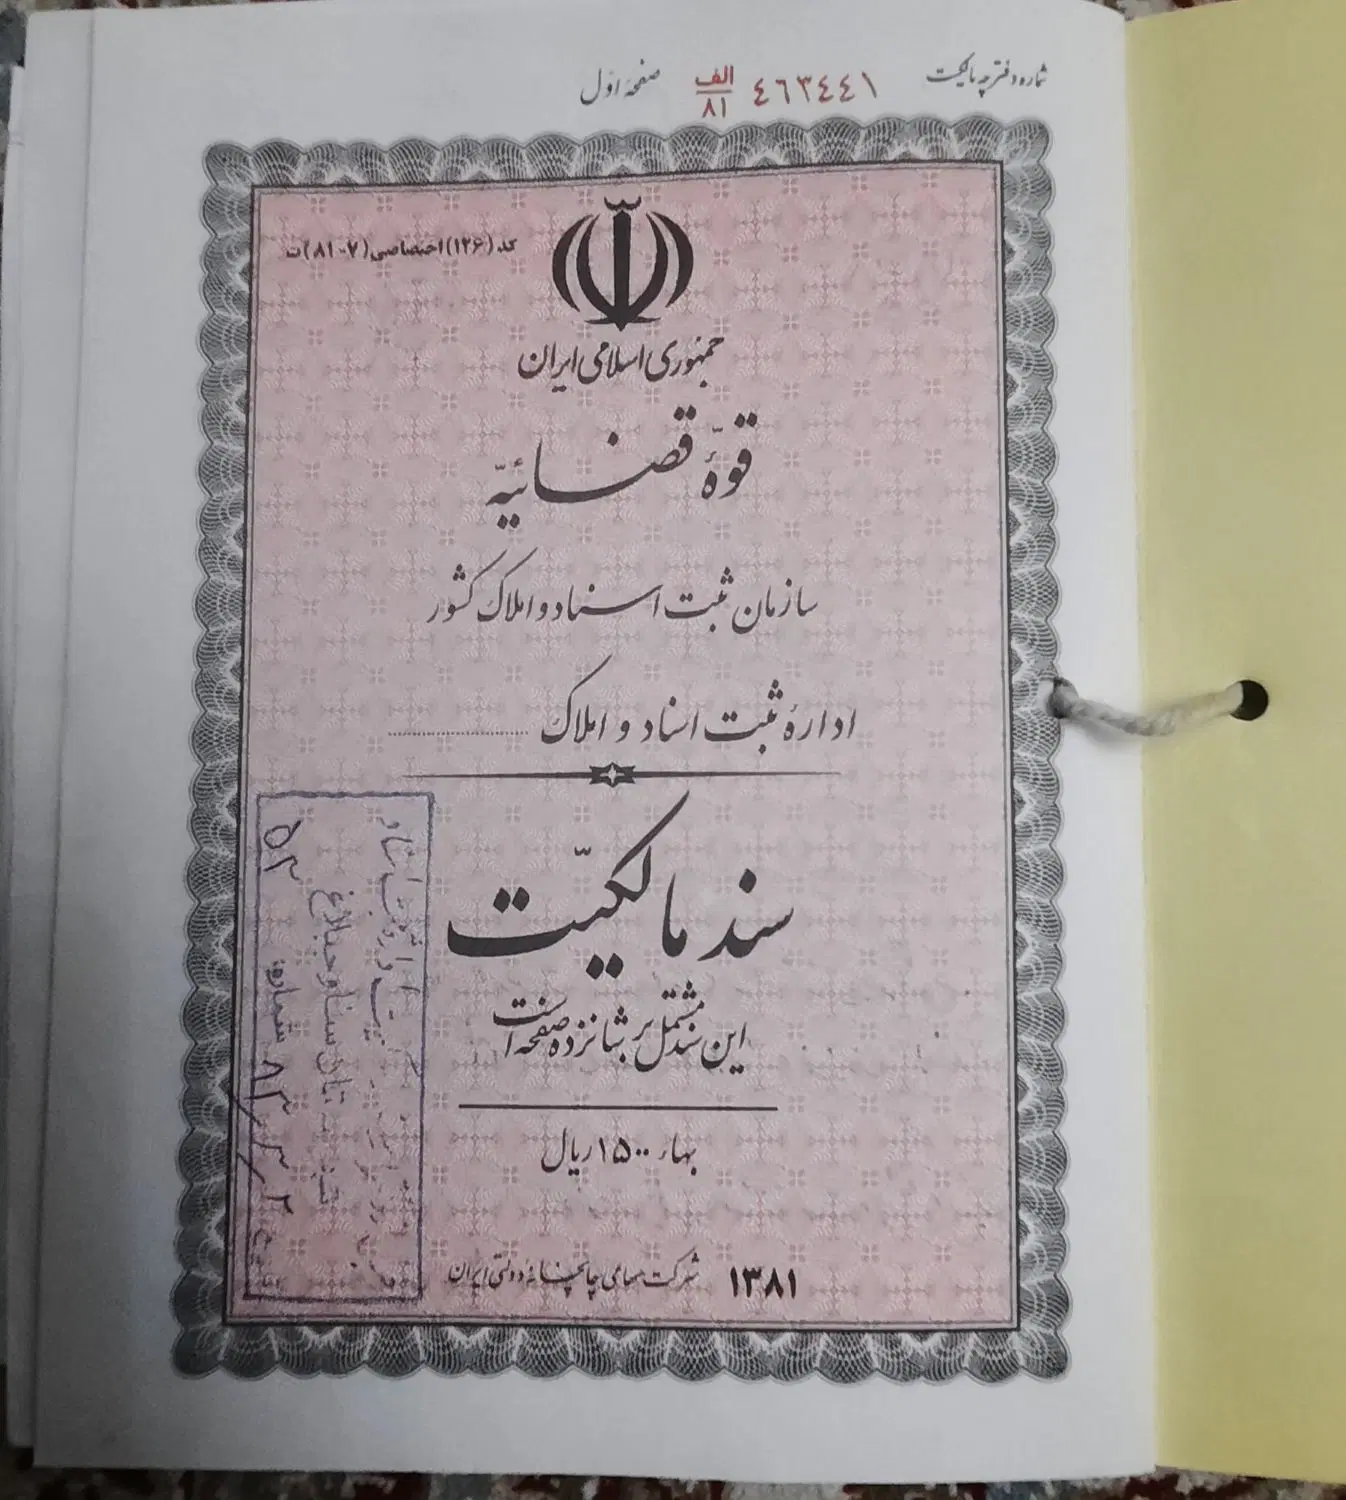 شماره دفترچه مالکیت ٤٦٣٤٤١ الف/٨١ صفحهٔ اوّل
کد (۱۲۶) اختصاصی (۷-۸۱) ت
جمهوری اسلامی ایران
قوّهٔ قضائیّه
سازمان ثبت اسناد و املاک کشور
ادارهٔ ثبت اسناد و املاک ....................
سند مالکیّت
این سند مشتمل بر شانزده صفحه است
بهاء ۱۵۰۰ ریال
۱۳۸۱ شرکت سهامی چاپخانهٔ دولتی ایران
ثبت اسناد
ساوجبلاغ
شماره